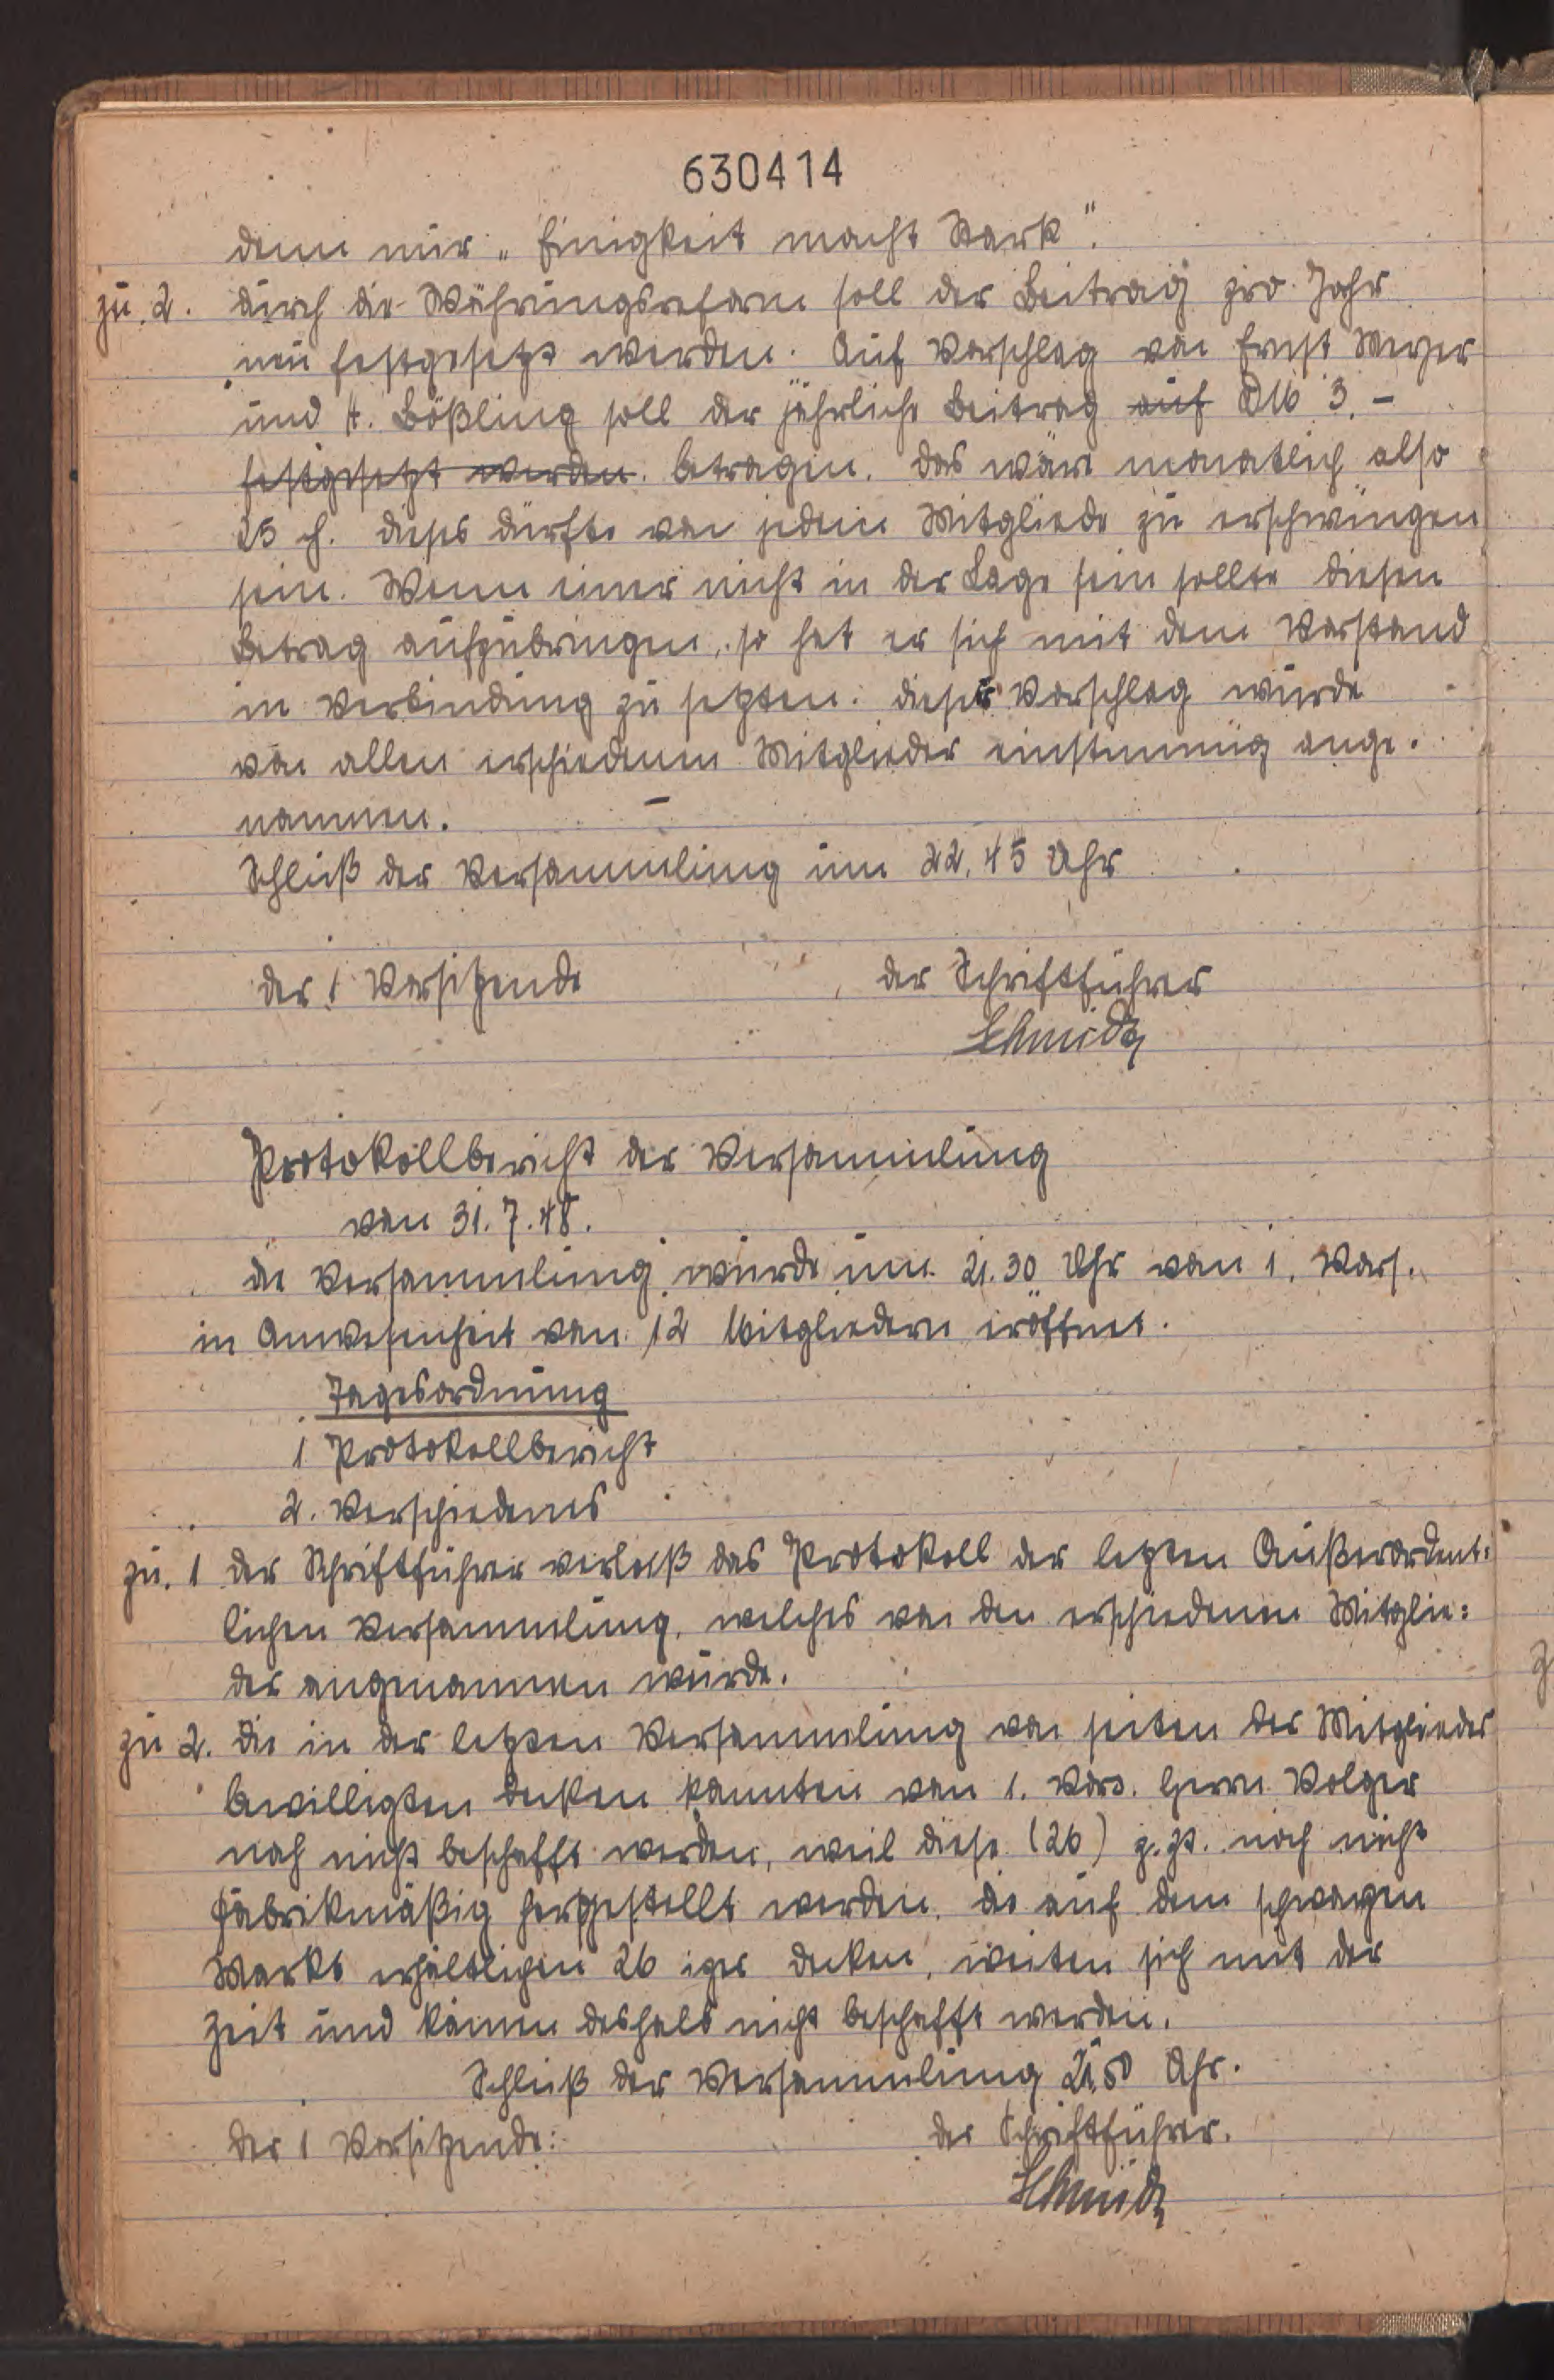 630414
denn nur „Einigkeit macht Stark".
zu. 2. durch die Währungsreform soll der Beitrag pro Jahr
neu festgesetzt werden. Auf Vorschlag von Ernst Meyer
und H. Bößling soll der jährliche Beitrag auf DM 3.-
festgesetzt werden. betragen. das wäre monatlich also
25 ₰. dieses dürfte von jedem Mitgliede zu erschwingen
sein. Wenn einer nicht in der Lage sein sollte diesen
Betrag aufzubringen, so hat er sich mit dem Vorstand
in Verbindung zu setzten. dieser Vorschlag wurde
von allen erschiedenen Mitglieder einstimmig ange-
nommen.
Schluß der Versammlung um 22.45 Uhr
der 1 Vorsitzende der Schriftführer
Schmidt
Protokollbericht der Versammlung
vom 31.7.48.
die Versammlung wurde um 21.30 Uhr vom 1. Vors.
in Anwesenheit von 12 Mitgliedern eröffnet.
Tagesordnung
1 Protokollbericht
2. Verschiedenes
zu. 1 der Schriftführer verlaß das Protokoll der letzten Außerordent:
lichen Versammlung, welches von den erschiedenen Mitglie:
der angenommen wurde.
zu 2. die in der letzten Versammlung von seiten der Mitglieder
bewilligten decken konnten vom 1. Vors. Herrn Volger
noch nicht beschafft werden, weil diese (26) z.Zt. noch nicht
fabrikmäßig hergestellt werden. die auf dem schwarzen
Markt erhältlichen 26 iger decken, weiten sich mit der
Zeit und können deshalb nicht beschafft werden.
Schluß der Versammlung 21.50 Uhr.
der 1 Vorsitzende: der Schriftführer.
Schmidt